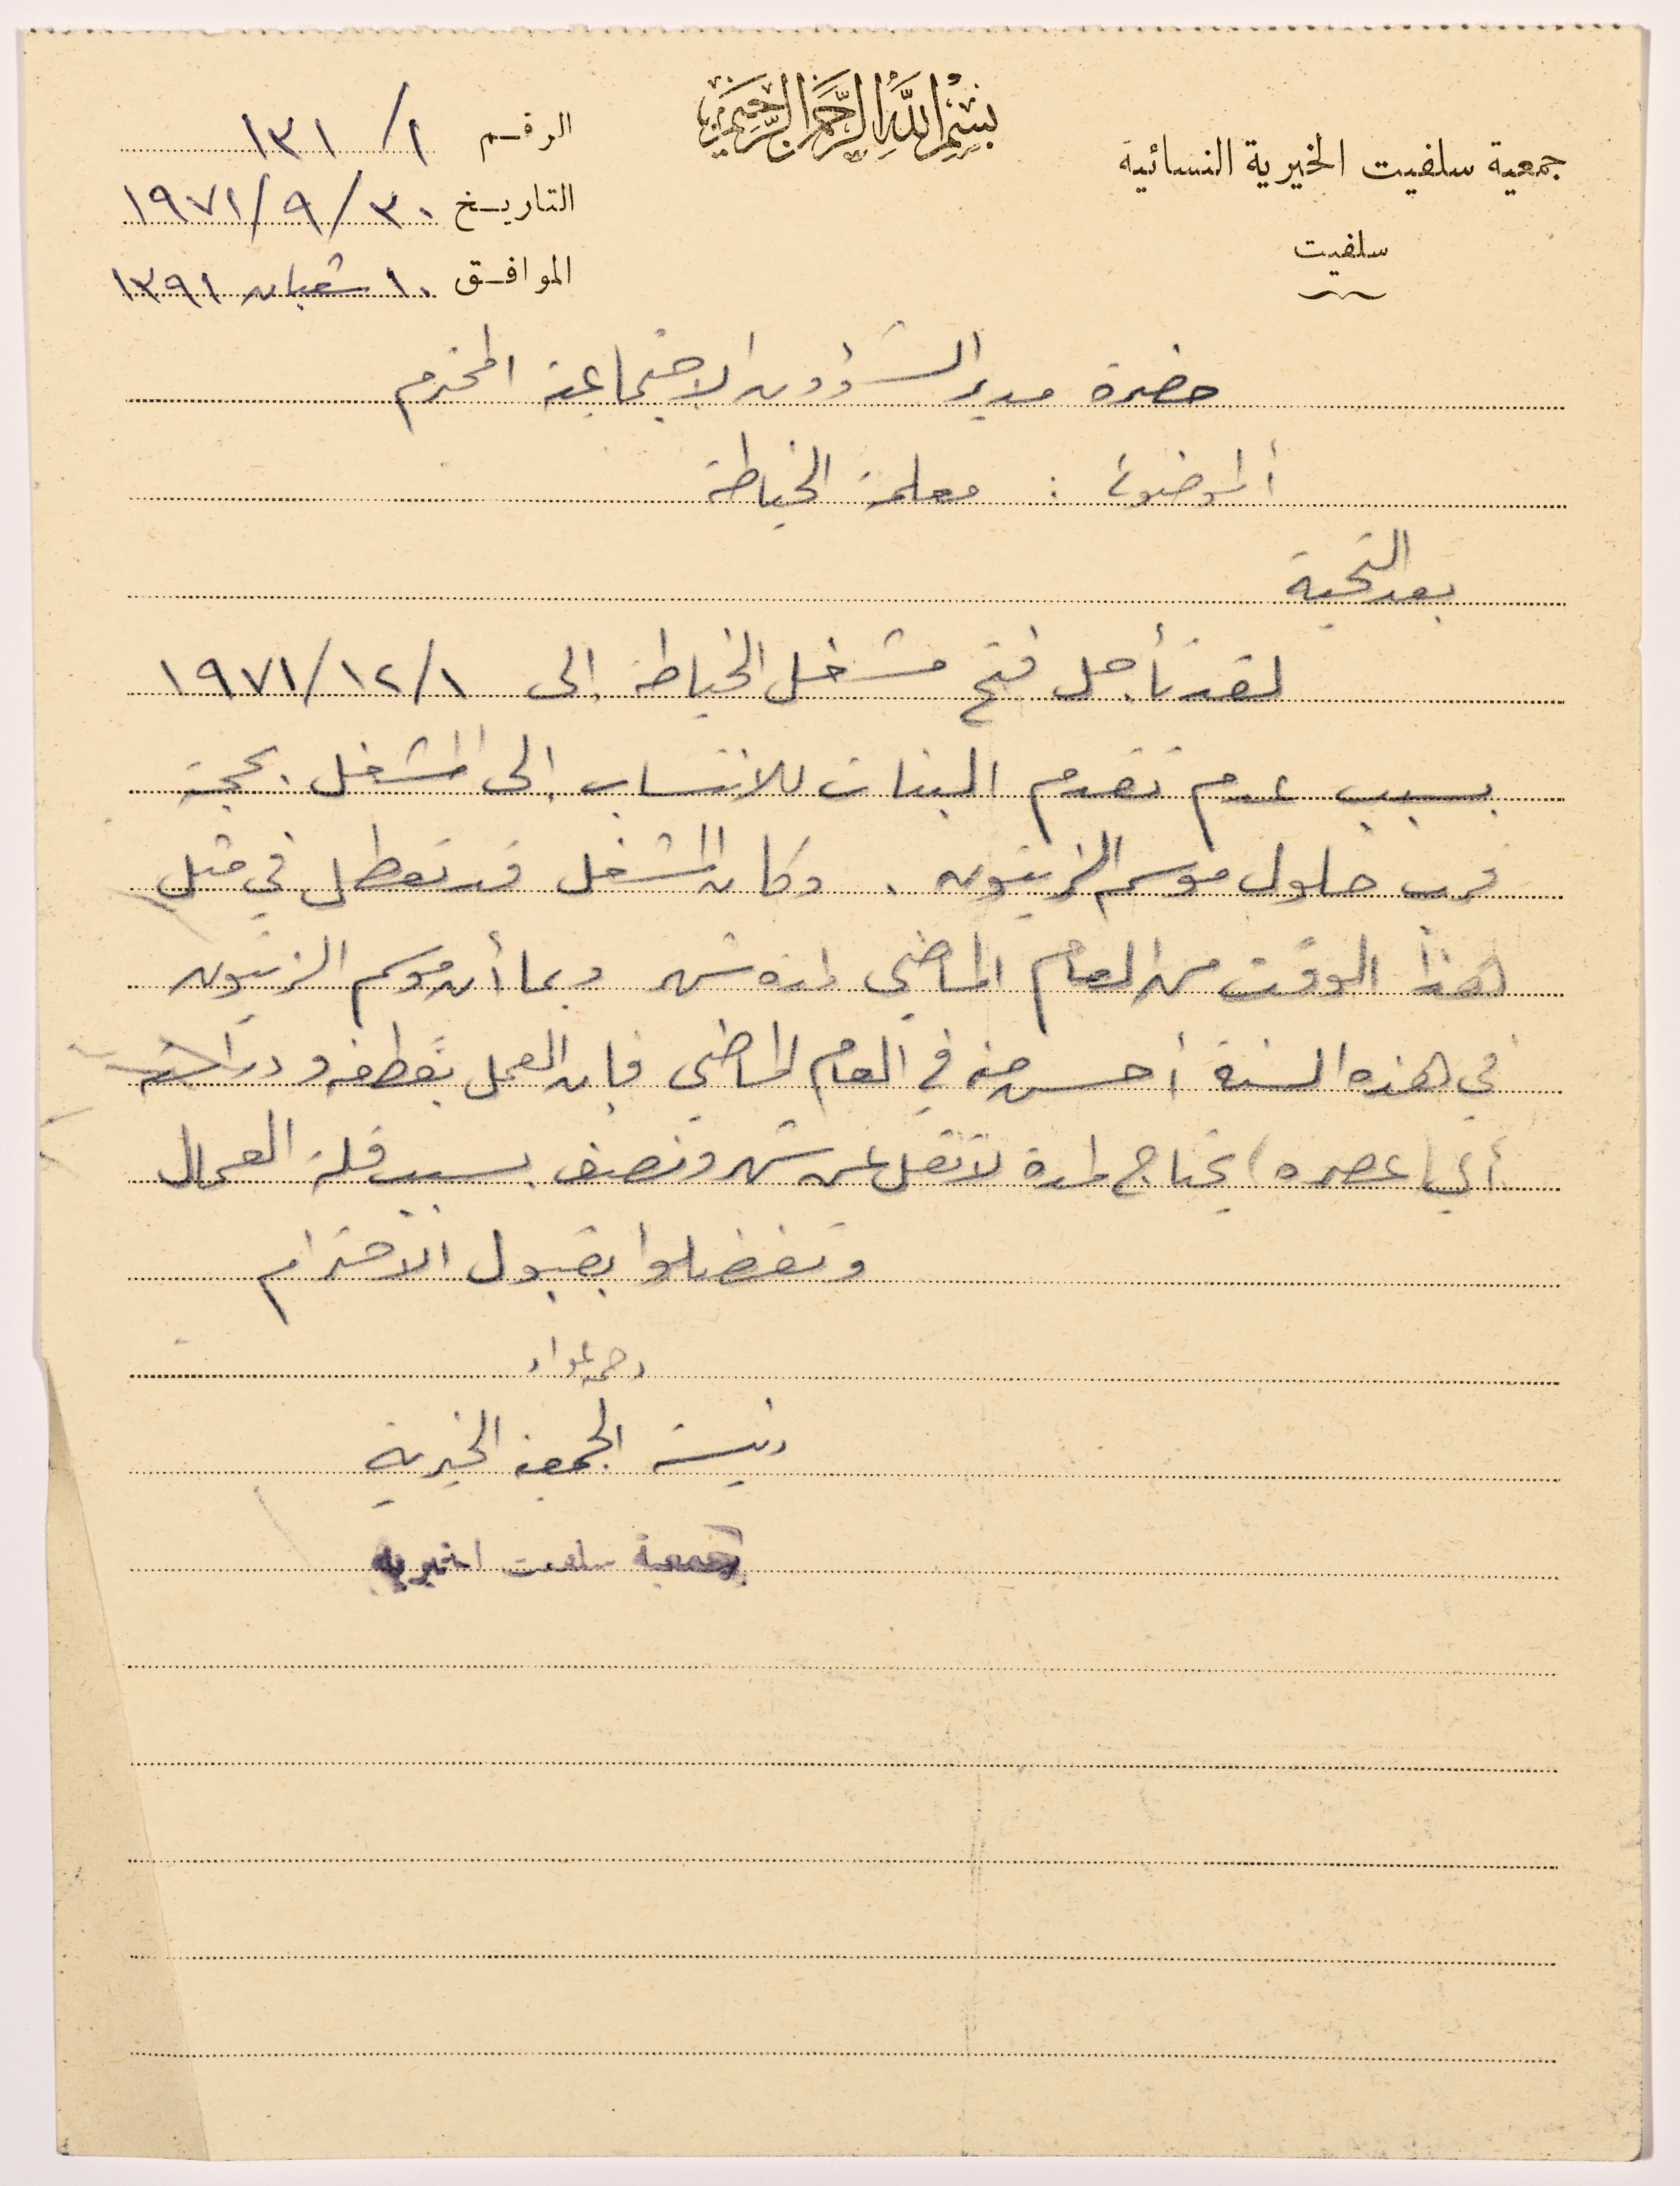 بسم الله الرحمن الرحيم
جمعية سلفيت الخيرية النسائية
سلفيت
الرقم ١/ ١٣١
التاريخ ٣٠/ ٩/ ١٩٧١
الموافق ١٠ شعبان ١٣٩١
حضرة مدير الشؤون الاجتماعية المحترم
الموضوع : معلمة الخياطة
بعد التحية
لقد تأجل فتح مشغل الخياطة إلى ١/ ١٢/ ١٩٧١
بسبب عدم تقدم البنات للانتساب إلى المشغل بحجة
قرب حلول موسم الزيتون . وكان المشغل قد تعطل في مثل
هذا الوقت من العام الماضي لمدة شهر وبما أن موسم الزيتون
في هذه السنة أحسن منه في العام الماضي فإن العمل بقطفه و دراسته
أي ( عصره ) يحتاج لمدة لا تقل عن شهر ونصف بسبب قلة العمال
وتفضلوا بقبول الاحترام
رئيسة الجمعية الخيرية
جمعية سلفيت الخيرية